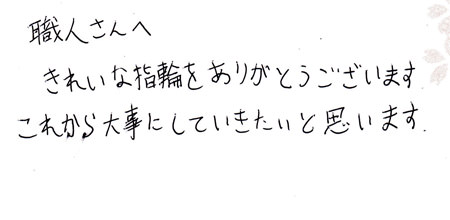 職人さんへ
きれいな指輪をありがとうございます
これから大事にしていきたいと思います.